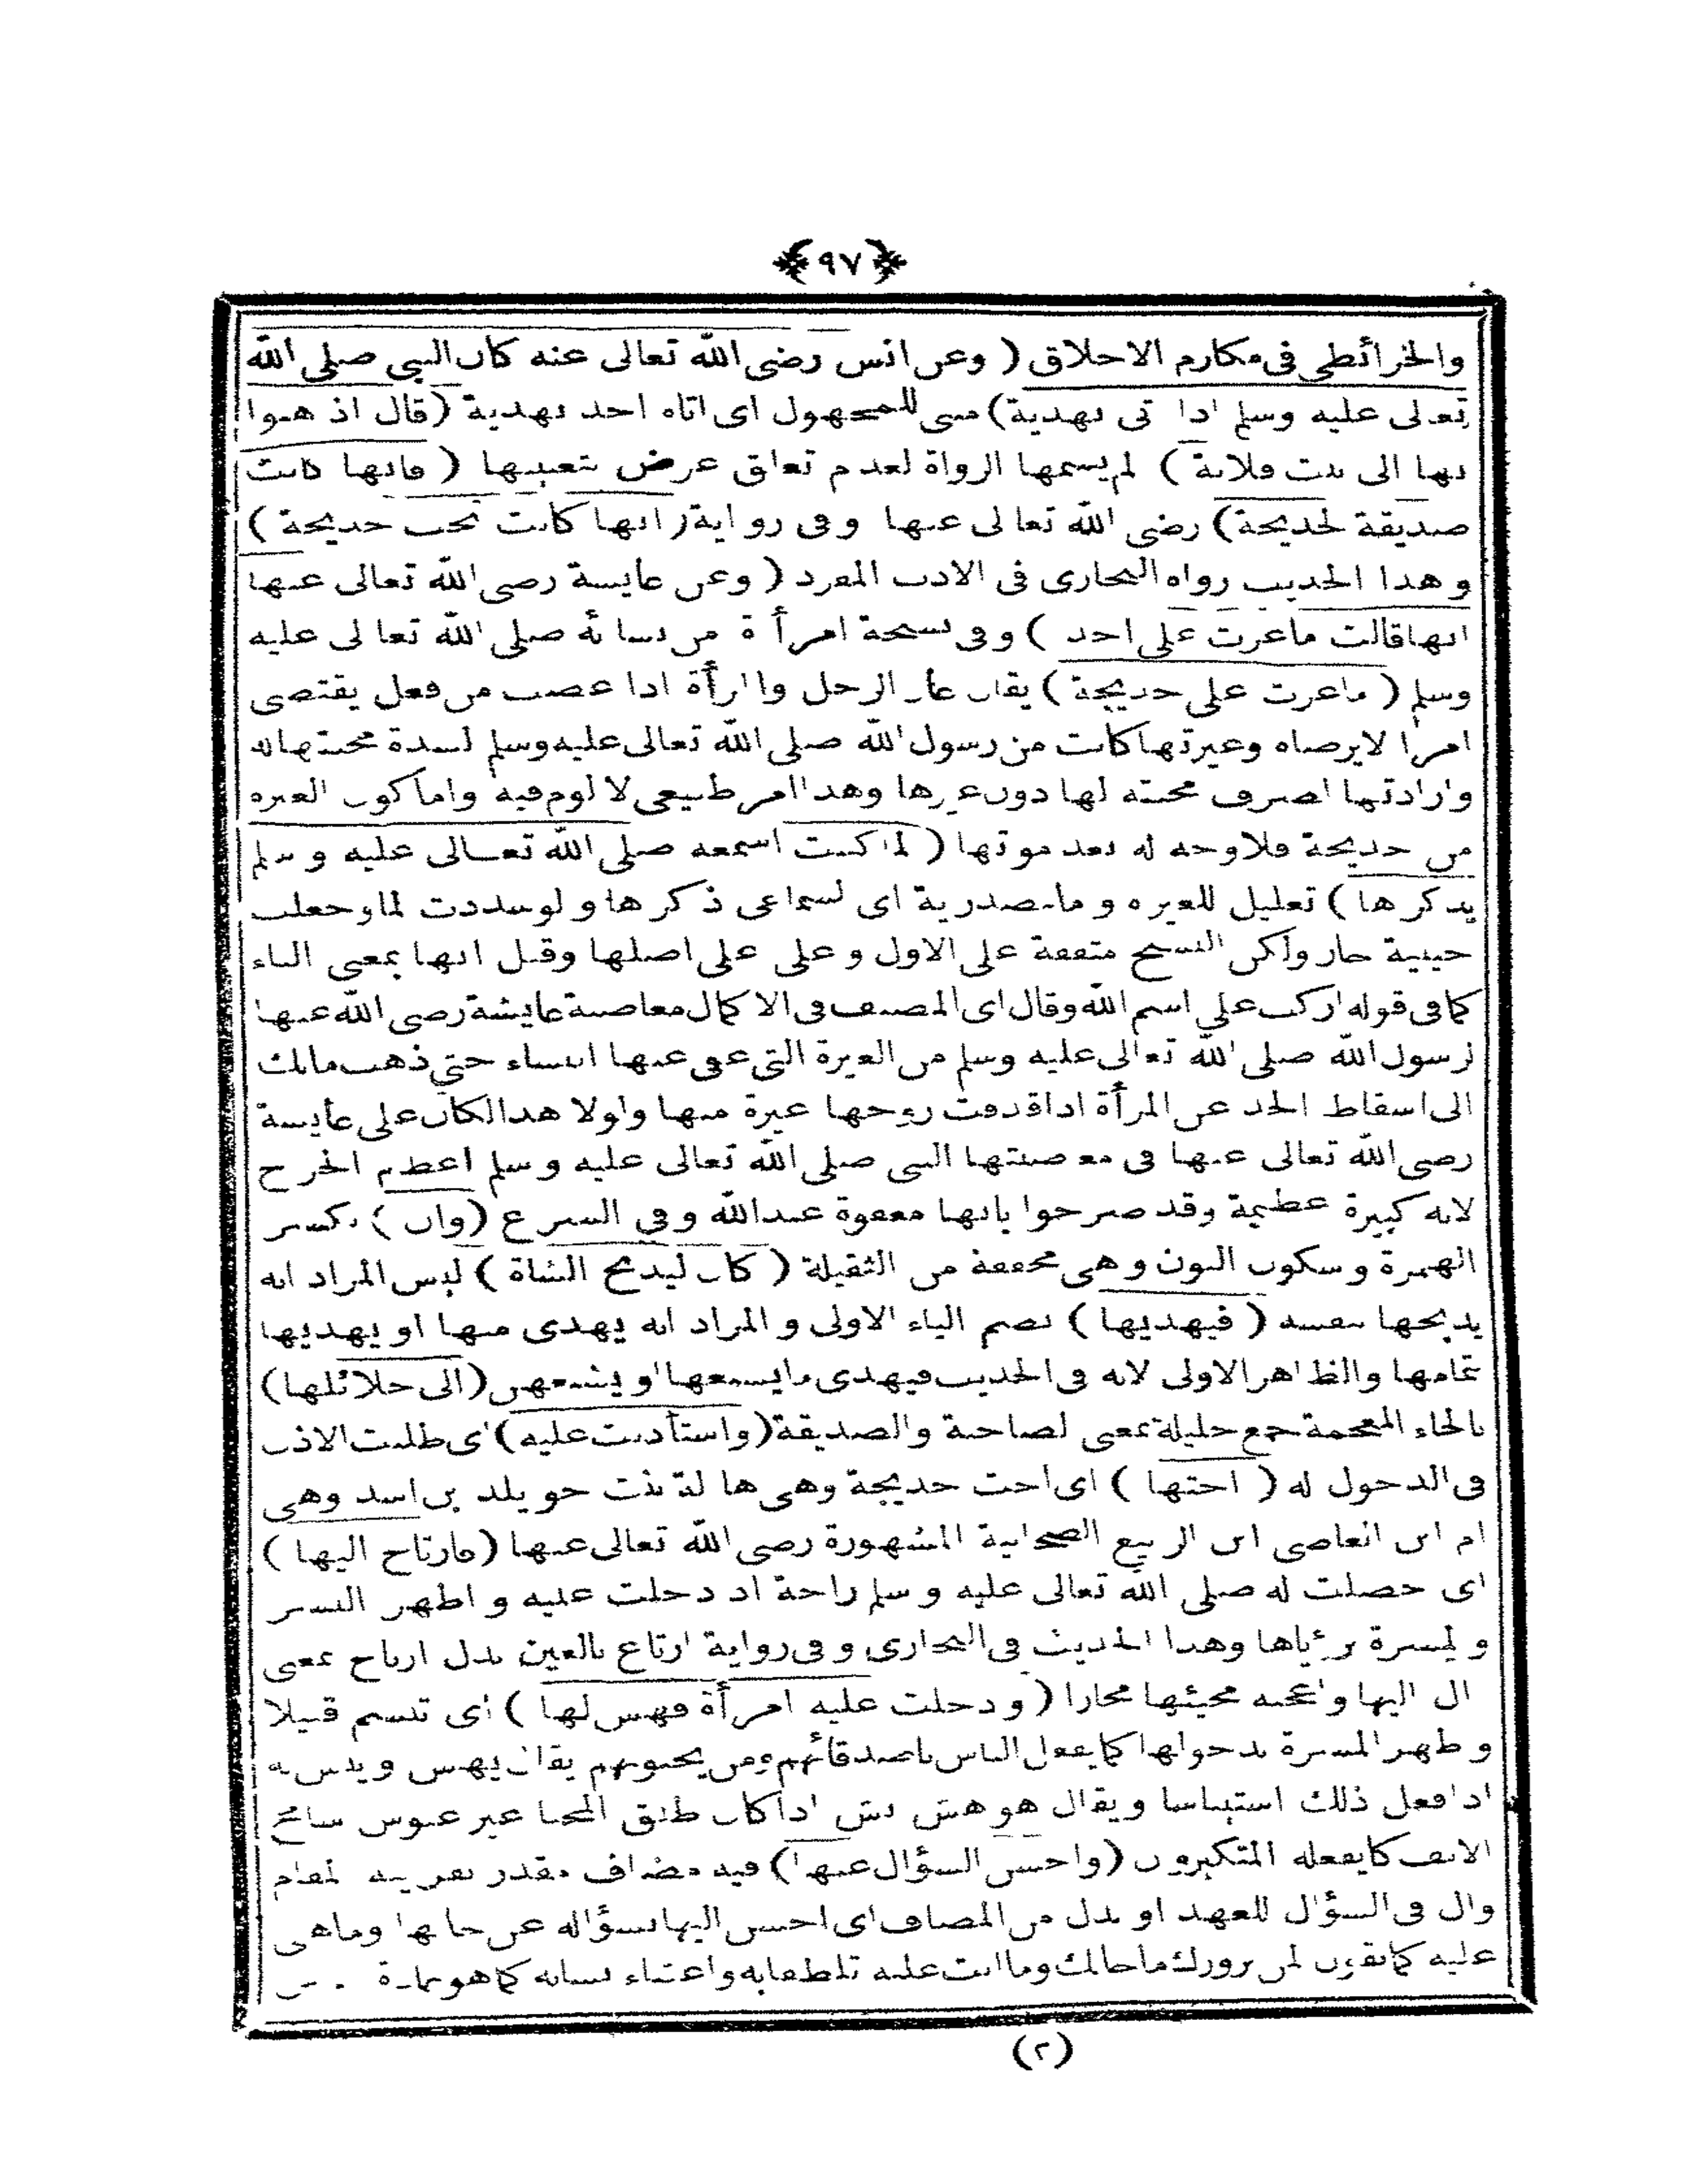 ﴿٩٧﴾
والخرائطى فى مكارم الاخلاق ( وعن انس رضى الله تعالى عنه كان النبى صلى الله
تعالى عليه وسلم اذا اتى بهدية) مبنى للمجهول اى اتاه احد بهدية (قال اذهبوا
بها الى بيت فلانة ) لم يسمها الرواة لعدم تعلق غرض بتعيينها ( فانها كانت
صديقة لخديجة) رضى الله تعالى عنها وفى رواية (انها كانت تحب خديجة )
وهذا الحديث رواه البخارى فى الادب المفرد ( وعن عايشة رضى الله تعالى عنها
انها قالت ماغرت على احد ) وفى نسخة امرأة من نسائه صلى الله تعالى عليه
وسلم ( ماغرت على خديجة ) يقال غار الرجل والمرأة اذا غضب من فعل يقتضى
امرا لايرضاه وغيرتها كانت من رسول الله صلى الله تعالى عليه وسلم لشدة محبتها له
وارادتها صرف محبته لها دون غيرها وهذا امر طبيعى لا لوم فيه واما كون الغيره
من خديجة فلاوجه له بعد موتها ( لما كنت اسمعه صلى الله تعالى عليه وسلم
يذكرها ) تعليل للغيره وما مصدرية اى لسماعى ذكرها ولو شددت لما وجعلت
حينية جاز ولكن النسخ متفقة على الاول وعلى على اصلها وقيل انها بمعنى الباء
كما فى قوله اركب على اسم الله وقال اى المصنف فى الاكمال مغاضبة عايشة رضى الله عنها
لرسول الله صلى الله تعالى عليه وسلم من الغيرة التى عفى عنها النساء حتى ذهب مالك
الى اسقاط الحد عن المرأة اذا قذفت زوجها غيرة منها ولولا هذا لكان على عايشة
رضى الله تعالى عنها فى مغضبتها النبى صلى الله تعالى عليه وسلم اعظم الحرج
لانه كبيرة عظيمة وقد صرحوا بانها معفوة عند الله وفى الشرع (وان ) بكسر
الهمزة وسكون النون وهى مخففة من الثقيلة ( كان ليذبح الشاة ) ليس المراد انه
يذبحها بنفسه ( فيهديها ) بضم الياء الاولى والمراد انه يهدى منها او يهديها
بتمامها والظاهر الاولى لانه فى الحديث فيهدى مايسعها او يشبعهن (الى خلائلها)
بالخاء المعجمة جمع خليلة بمعنى الصاحبة والصديقة (واستأذنت عليه) اى طلبت الاذن
فى الدخول له ( اختها ) اى اخت خديجة وهى هالة بنت خويلد بن اسد وهى
ام ابن العاصى ابن الربيع الصحابية المشهورة رضى الله تعالى عنها (فارتاح اليها )
اى حصلت له صلى الله تعالى عليه وسلم راحة اذ دخلت عليه واظهر البشر
والمسرة برؤياها وهذا الحديث فى البخارى وفى رواية ارتاع بالعين بدل ارتاح بمعنى
مال اليها واعجبه مجيئها مجازا ( ودخلت عليه امرأة فهش لها ) اى تبسم قليلا
وظهر المسرة بدخولها كما يفعل الناس باصدقائهم ومن يحبونهم يقال يهش ويبش به
اذا فعل ذلك استيناسا ويقال هو هش بش اذا كان طلق المحيا غير عبوس شامخ
الانف كما يفعله المتكبرون (واحسن السؤال عنها) فيه مضاف مقدر بقرينة المقام
وال فى السؤال للعهد او بدل من المضاف اى احسن اليها بسؤاله عن حالها وماهى
عليه كما تقول لمن يزورك ماحالك وما انت عليه تلطفا به واعتناء بشانه كما هو
(٢)